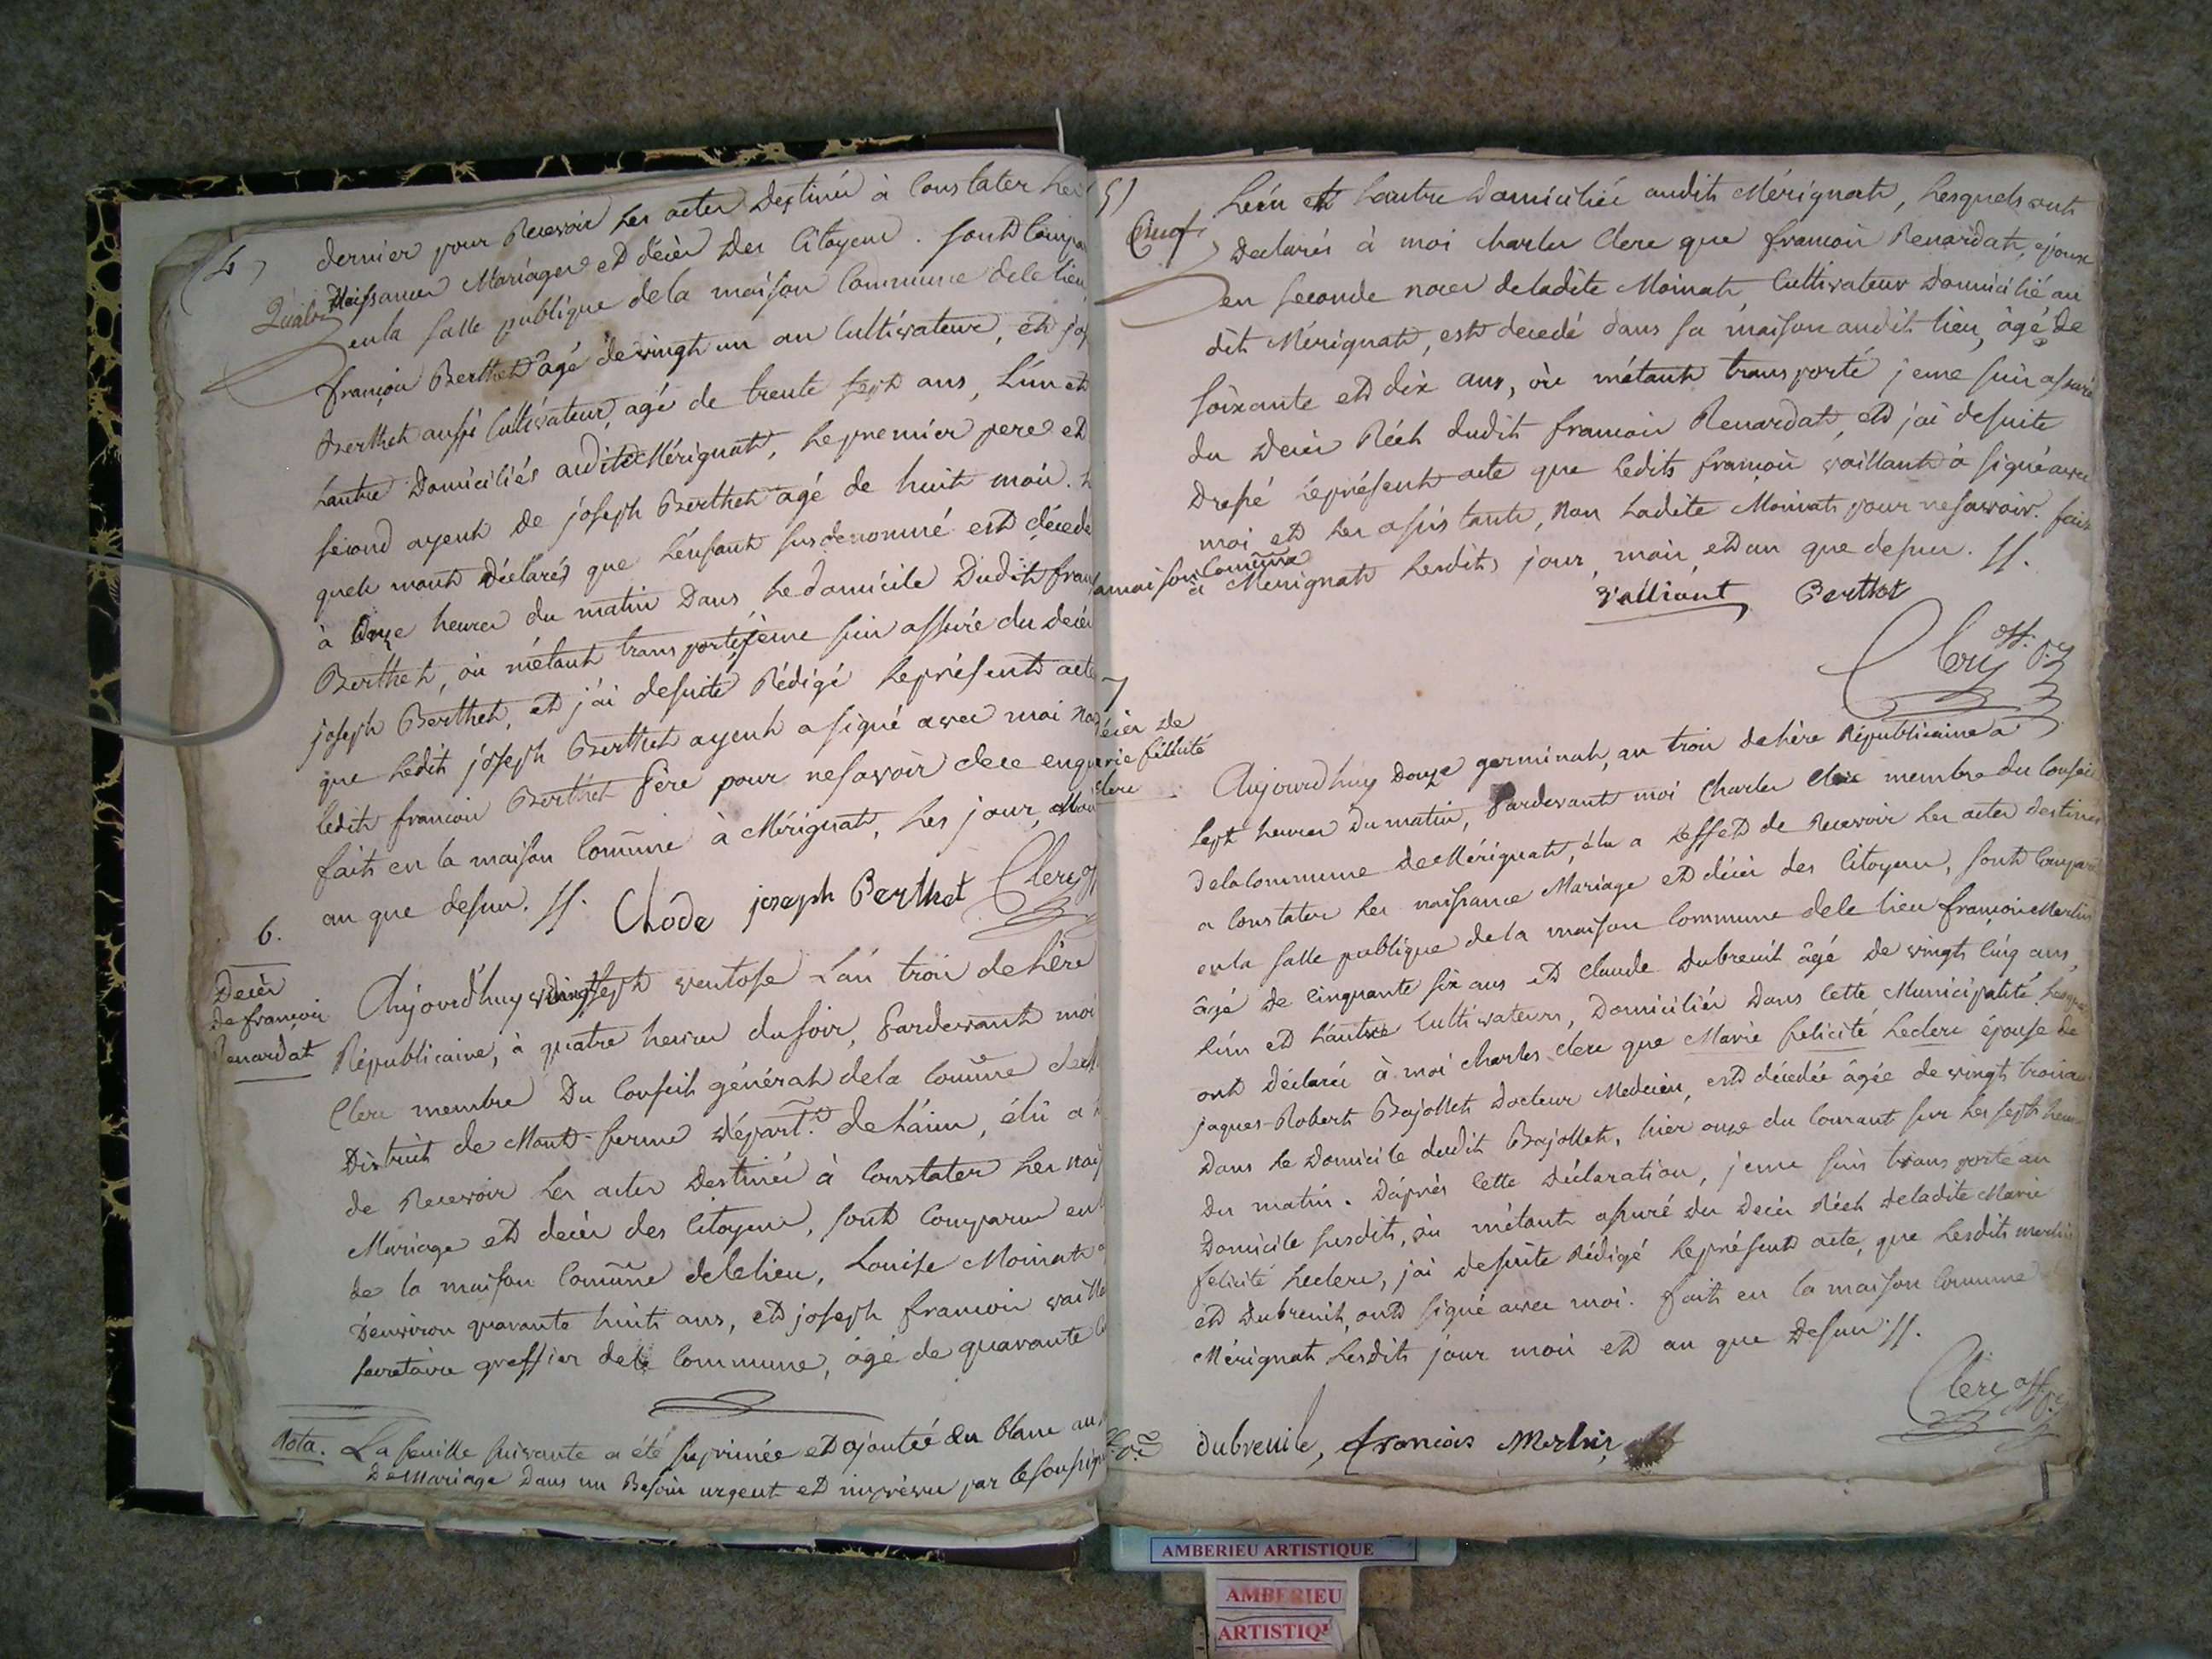 4
dernier pour Recevoir les actes destinés à Constater les
Quatre
Naissance Mariages et décès des Citoyens. sont Compar
en la salle publique de la maison Commune dele lieu
françois Berthet âgé de vingt un an Cultivateur, et jos
Berthet aussi Cultivateur, agé de trente sept ans, L'un et
Lautre Domiciliés audit Mérignat, le premier pere et
second ayeul de joseph Berthet agé de huit mois.
quels mont Déclarés que Lénfant susdenommé est décedé
à onze heures du matin Dans le domicile Dudit fran
Berthet, où métant transporté, jeme suis assuré du decès
joseph Berthet, et j'ai desuite Rédigé le présent acte
que ledit joseph Berthet ayeul a signé avec moi non
ledit françois Berthet Père pour nesavoir dece enquis
fait en la maison Comune à Mérignat, les jour, mois
an que dessus. //. Chode joseph Berthet Clerc off
6.
Decès
de françois
Renardat
Aujourd'huy vingt sept ventose L'an trois de hère
Républicaine, à quatre heures du soir, Pardevant moi
Clerc membre Du Conseil général dela Comune de
District de Mont-ferme départ.t de L'ain, élu a
de Recevoir les actes Destinés à Constater les nais
Mariage et decès des Citoyens, sont Comparus en
de la maison Comune dele lieu, Louise Moinat
D'environ quarante huit ans, et joseph françois vailla
secretaire greffier dele Commune, âgé de quarante
Nota. La feuille suivante a été suprimée et ajoutée du blanc au
De Mariage Dans un Besoin urgent et imprévu par le soussign
5
Cinq
Léun et Lautre Domiciliée audit Mérignat, Lesquels ont
Declarés à moi charles Clerc que françois Renardat, époux
en seconde noces deladite Moinat Cultivateur Domicilié au
dit Mérignat, est decedé dans sa maison audit lieu, âgé de
soixante et dix ans, où métant transporté jeme suis assuré
du Decès Réel dudit francois Renardat, et jai desuite
Dressé le présent acte que ledit françois vaillant à signé avec
moi et les assistants, Non Ladite Moinat pour nesavoir. fait
lamaison Comune
à Merignat Lesdits jour, mois, et an que dessus. //.
Vailliant Berthet
Clerc off. p.
7
Décès de
Marie félicité
Leclerc
Aujourd'huy Douze germinal, an trois de hère Républicaine à
sept heures du matin, Pardevant moi Charles Clerc membre du Conseil
dela Commune de Mérignat, élu a L'effet de Recevoir les actes destinés
a Constater les naissance Mariage et décès des Citoyens, sont Compar
en la salle publique dela maison Commune dele lieu françois Merlin
âgé de Cinquante six ans et Claude Dubreuil âgé de vingt Cinq ans,
L'un et L'autre Cultivateurs, Domiciliés Dans Cette Municipalité, Lesquels
ont Déclarés à moi charles clerc que Marie félicité Leclerc épouse de
jaques-Robert Bajollet Docteur Medecin, est décedée âgée de vingt trois ans
Dans le Domicile dudit Bajollet, hier onze du Courant sur les sept heures
Du matin. D'après Cette Déclaration, jeme suis transporté au
Domicile susdit, où métant assuré du Decès Réel deladite Marie
felicité Leclerc, jai desuite Rédigé le présent acte, que lesdits merlin
et Dubreuil, ont signé avec moi. fait en la maison Commune
Mérignat lesdits jour mois et an que Dessus. //.
Clerc off p.
dubreuile, francois Merlin
AMBERIEU ARTISTIQUE
AMBERIEU
ARTISTIQ